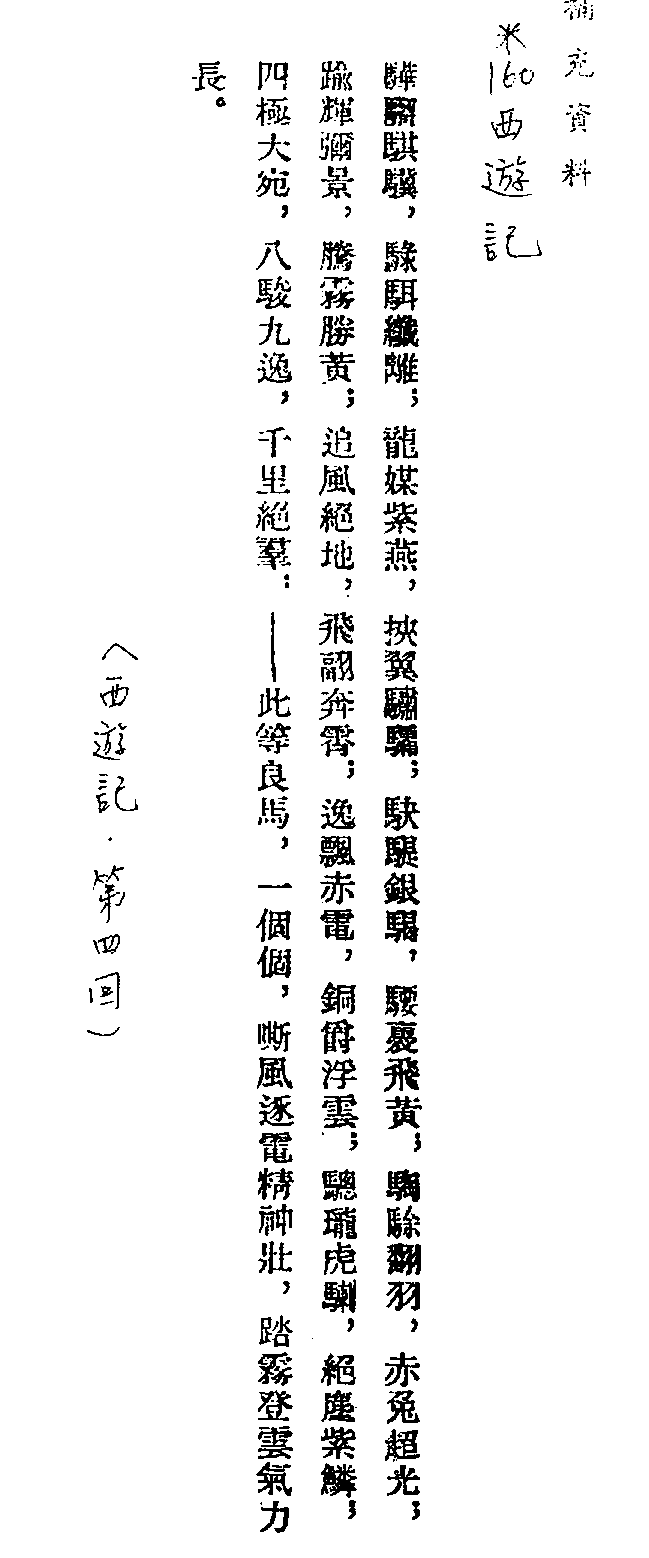 補充資料
※160西遊記
驊騮騏驥，騄駬纖離；龍媒紫燕，挾翼驌驦；駃騠銀騧，騕褭飛黃；騊駼翻羽，赤兔超光；
踰輝彌景，騰霧勝黃；追風絕地，飛翮奔霄；逸飄赤電，銅爵浮雲；驄瓏虎，絕塵紫鱗；
四極大宛，八駿九逸，千里絕羣：——此等良馬，一個個，嘶風逐電精神壯，踏霧登雲氣力
長。
〈西遊記．第四回〉